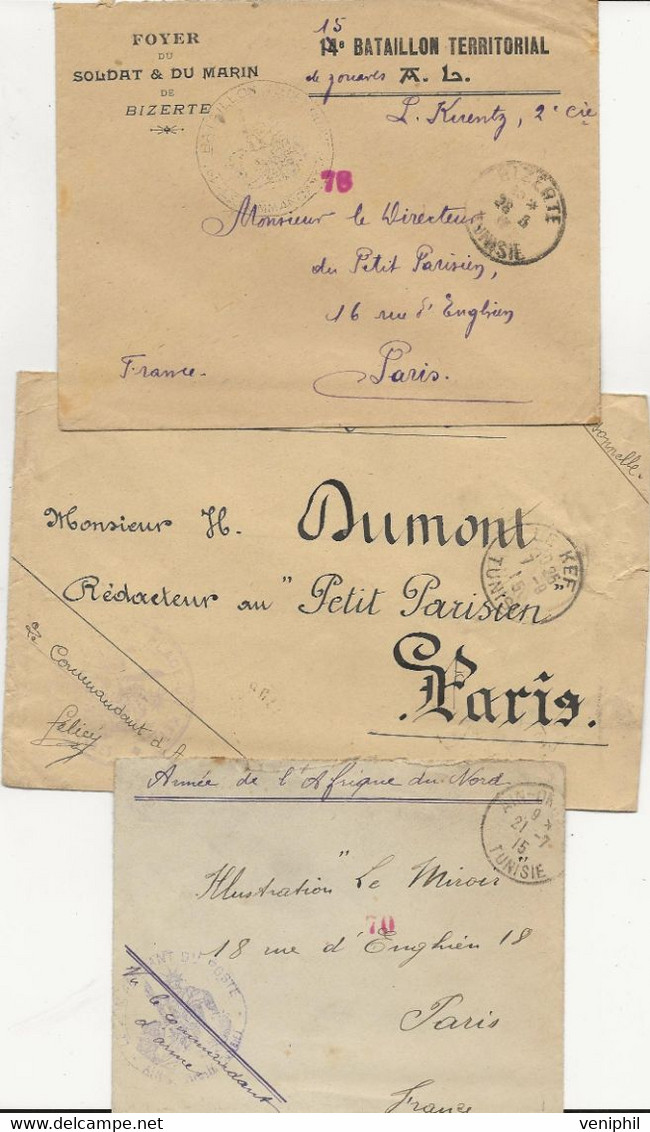 FOYER
DU
SOLDAT & DU MARIN
DE
BIZERTE
15
14e BATAILLON TERRITORIAL
de zouaves A. L.
L. Kuentz, 2e Cie
BATAILLON
78
BIZERTE
28 8
TUNISIE
Monsieur le Directeur
du Petit Parisien,
16 rue d'Enghien
Paris.
France.
Monsieur H. Dumont
Rédacteur au "Petit Parisien"
Paris.
LE KEF
TUNISIE
Le Commandant d'A
Armée de l'Afrique du Nord
9 *
21 -7
15
TUNISIE
Illustration "Le Miroir"
70
18 rue d'Enghien 18
Paris
France
Vu le commandant
d'armes
veniphil